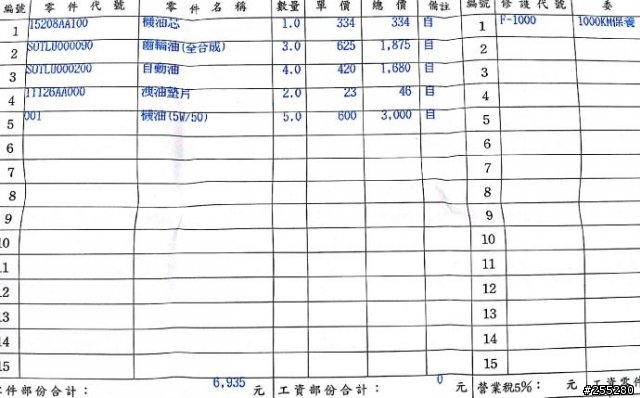 編號 零件代號 零件名稱 數量 單價 總價 備註 編號 修護代號 委
1 15208AA100 機油芯 1.0 334 334 自 1 F-1000 1000KM保養
2 SOTLU000090 齒輪油(全合成) 3.0 625 1,875 自 2
3 SOTLU000200 自動油 4.0 420 1,680 自 3
4 11126AA000 洩油墊片 2.0 23 46 自 4
5 001 機油(5W/50) 5.0 600 3,000 自 5
6 6
7 7
8 8
9 9
10 10
11 11
12 12
13 13
14 14
15 15
零件部份合計： 6,935 元 工資部份合計： 0 元 營業稅5%： 元 工資零件
#255280